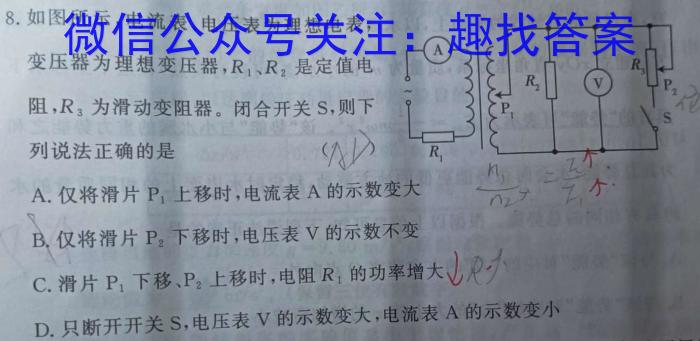 8.如图所示,电流表、电压表为理想电表,
微信公众号关注：趣找答案
变压器为理想变压器,R₁、R₂ 是定值电
阻,R₃ 为滑动变阻器。闭合开关 S,则下
列说法正确的是
A. 仅将滑片 P₁ 上移时,电流表 A 的示数变大
B. 仅将滑片 P₂ 下移时,电压表 V 的示数不变
C. 滑片 P₁ 下移、P₂ 上移时,电阻 R₁ 的功率增大
D. 只断开开关 S,电压表 V 的示数变大,电流表 A 的示数变小
A
R₁
P₁
R₂
V
R₃
P₂
S